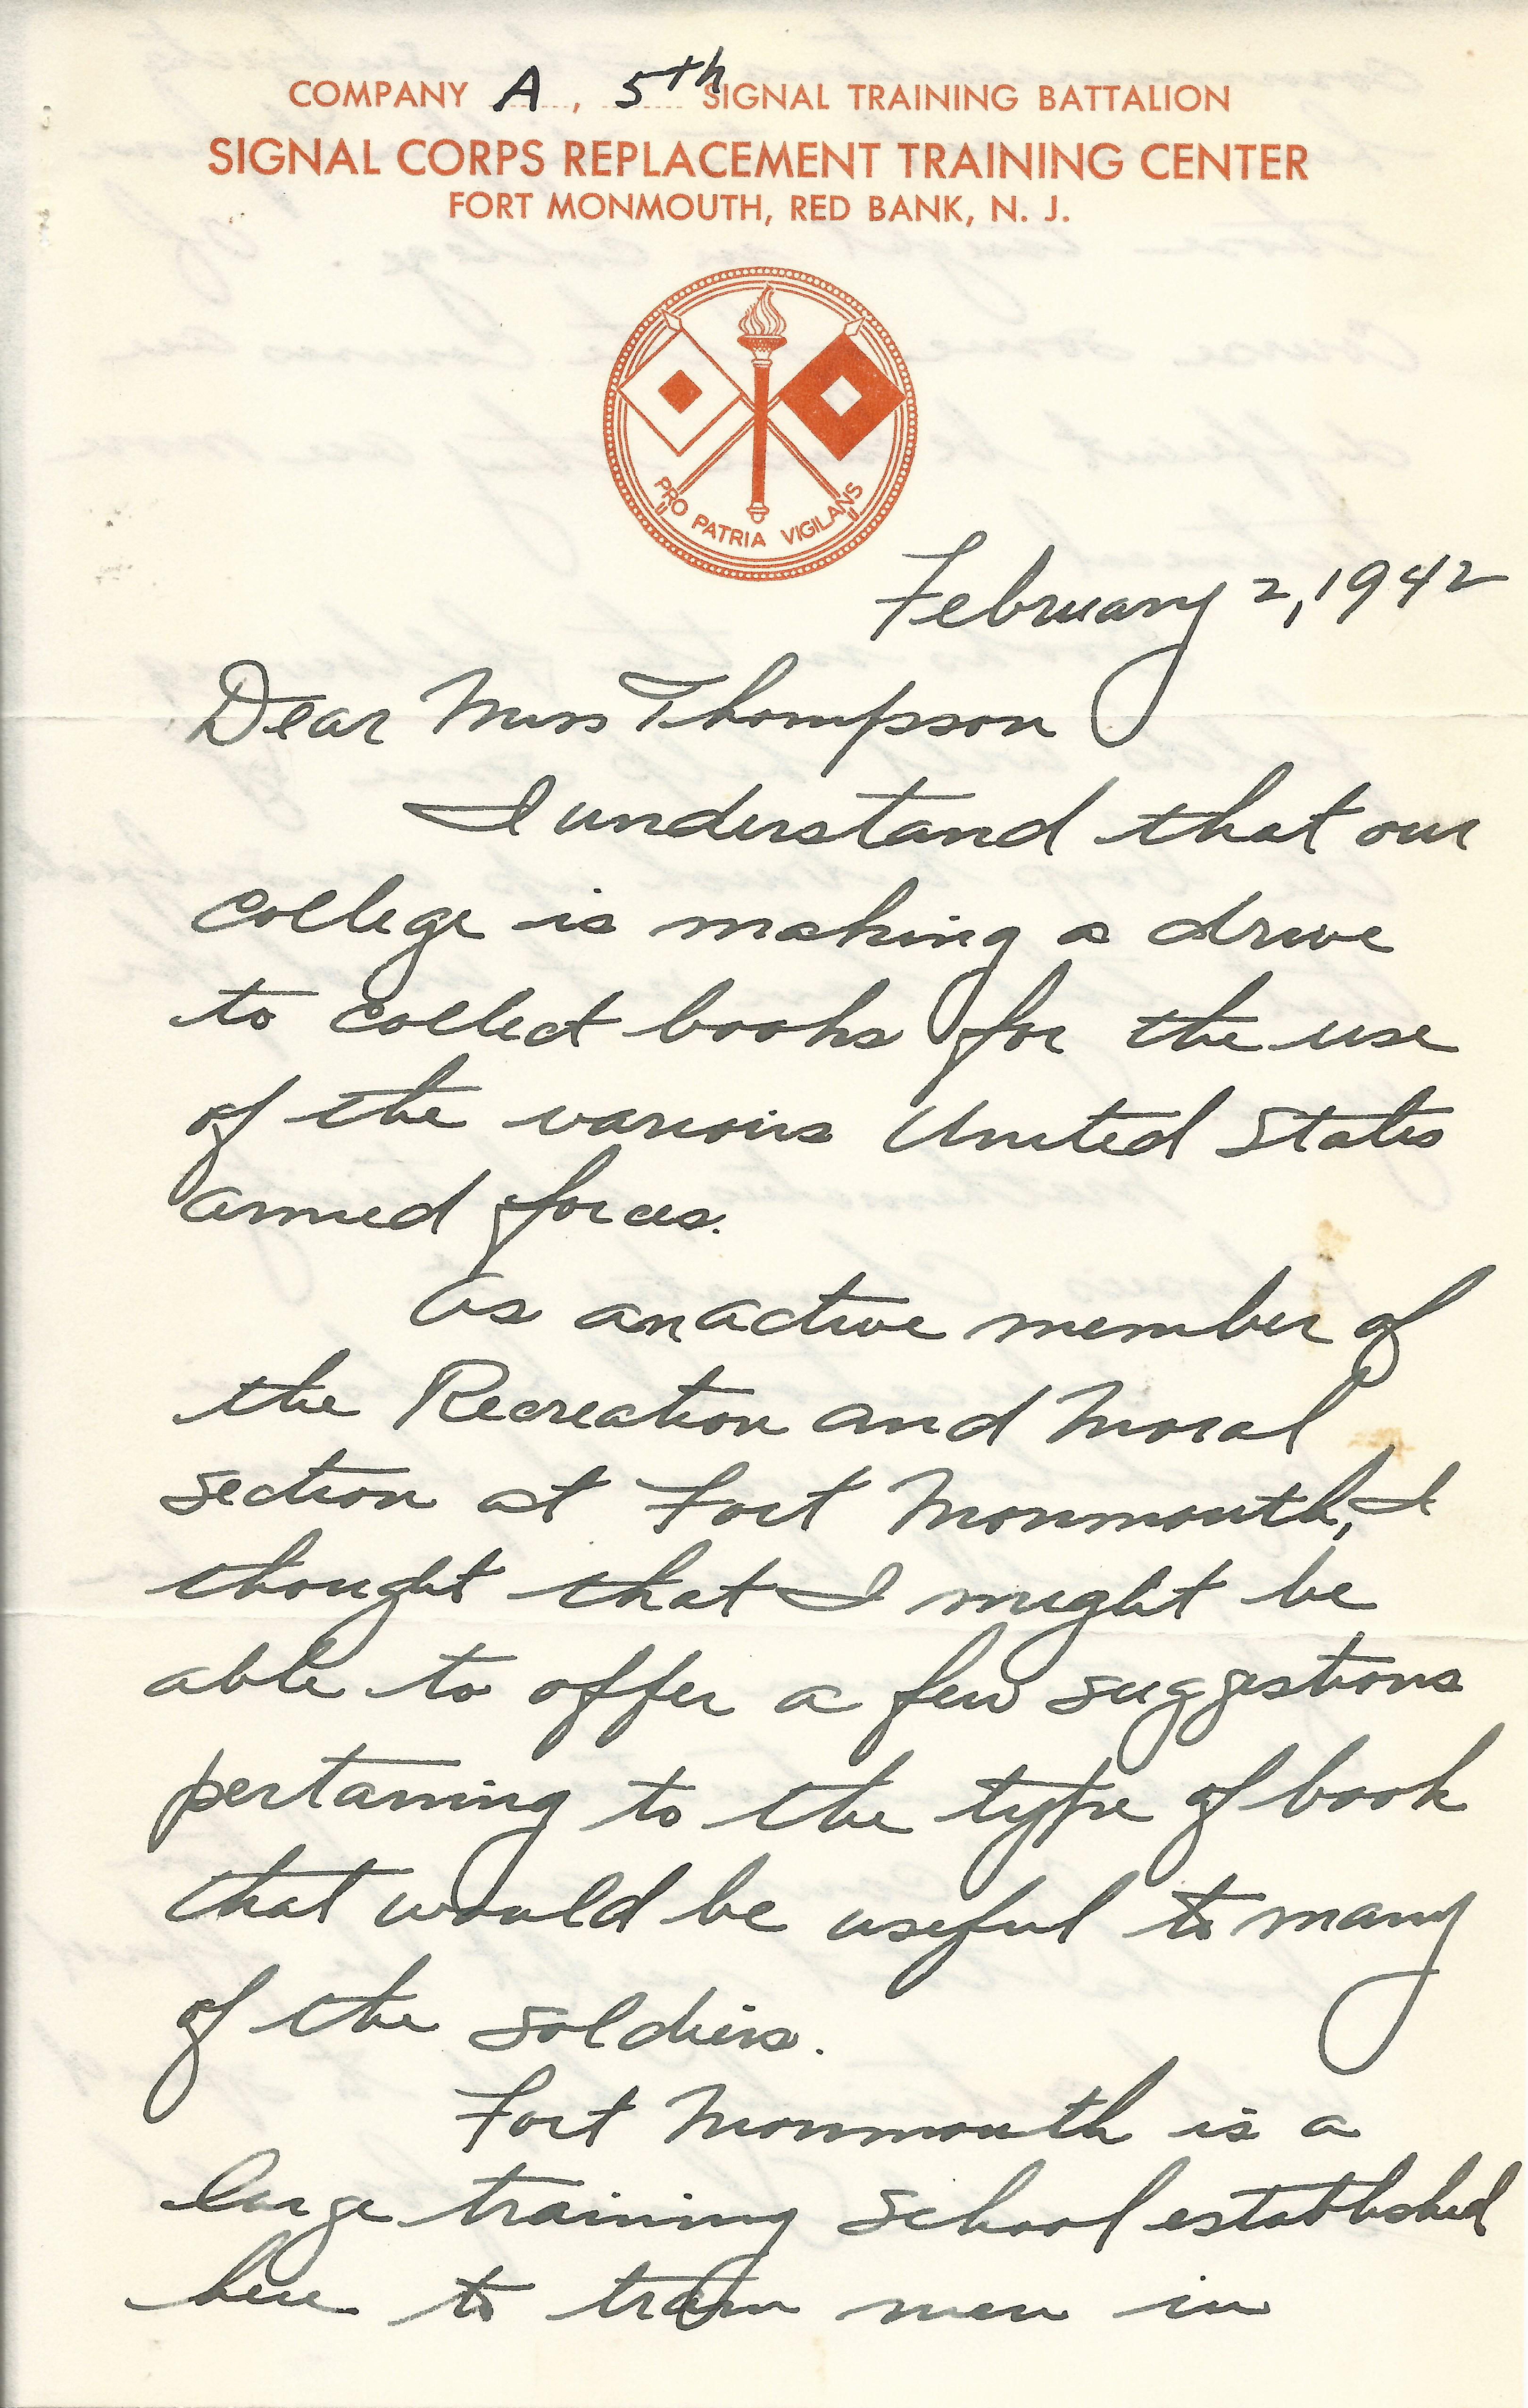 COMPANY A, 5th SIGNAL TRAINING BATTALION
SIGNAL CORPS REPLACEMENT TRAINING CENTER
FORT MONMOUTH, RED BANK, N. J.
PRO PATRIA VIGILANS
February 2, 1942
Dear Miss Thompson
I understand that our
college is making a drive
to collect books for the use
of the various United States
armed forces.
As an active member of
the Recreation and Moral
section at Fort Monmouth, I
thought that I might be
able to offer a few suggestions
pertaining to the type of book
that would be useful to many
of the soldiers.
Fort Monmouth is a
large training school established
here to train men in